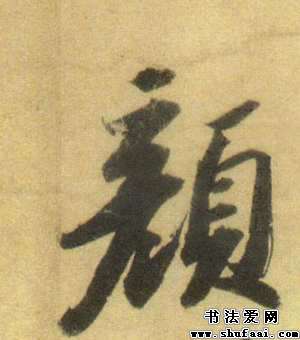 顔
书法爱网
www.shufaai.com